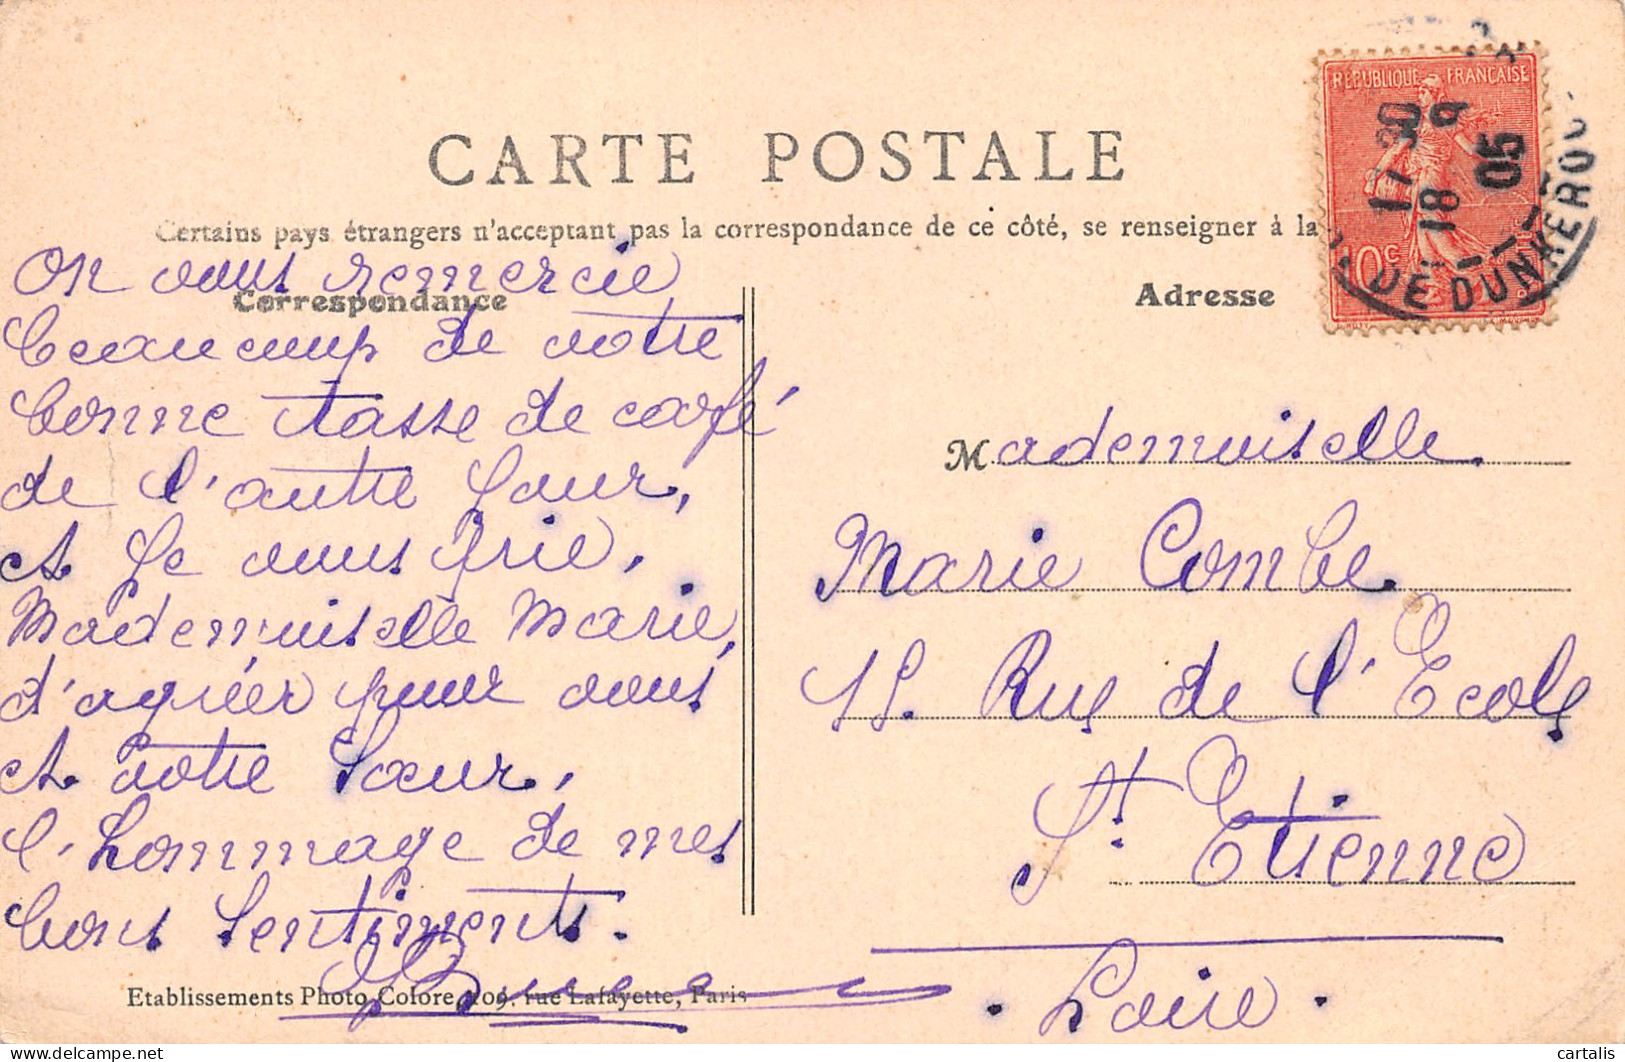 CARTE POSTALE
Certains pays étrangers n'acceptent pas la correspondance de ce côté, se renseigner à la
Correspondance
Adresse
RÉPUBLIQUE FRANÇAISE
10c
17 30
18 9
05
RUE DUNKERQU
On vous remercie
beaucoup de votre
bonne tasse de café
de l'autre jour,
et je vous prie,
Mademoiselle Marie,
d'agréer pour vous
et votre sœur,
l'hommage de mes
bons sentiments.
Mademoiselle
Marie Combe
15. Rue de l'Ecole
St. Etienne
Loire
Etablissements Photo Colore, 109, rue Lafayette, Paris
cartalis
delcampe.net